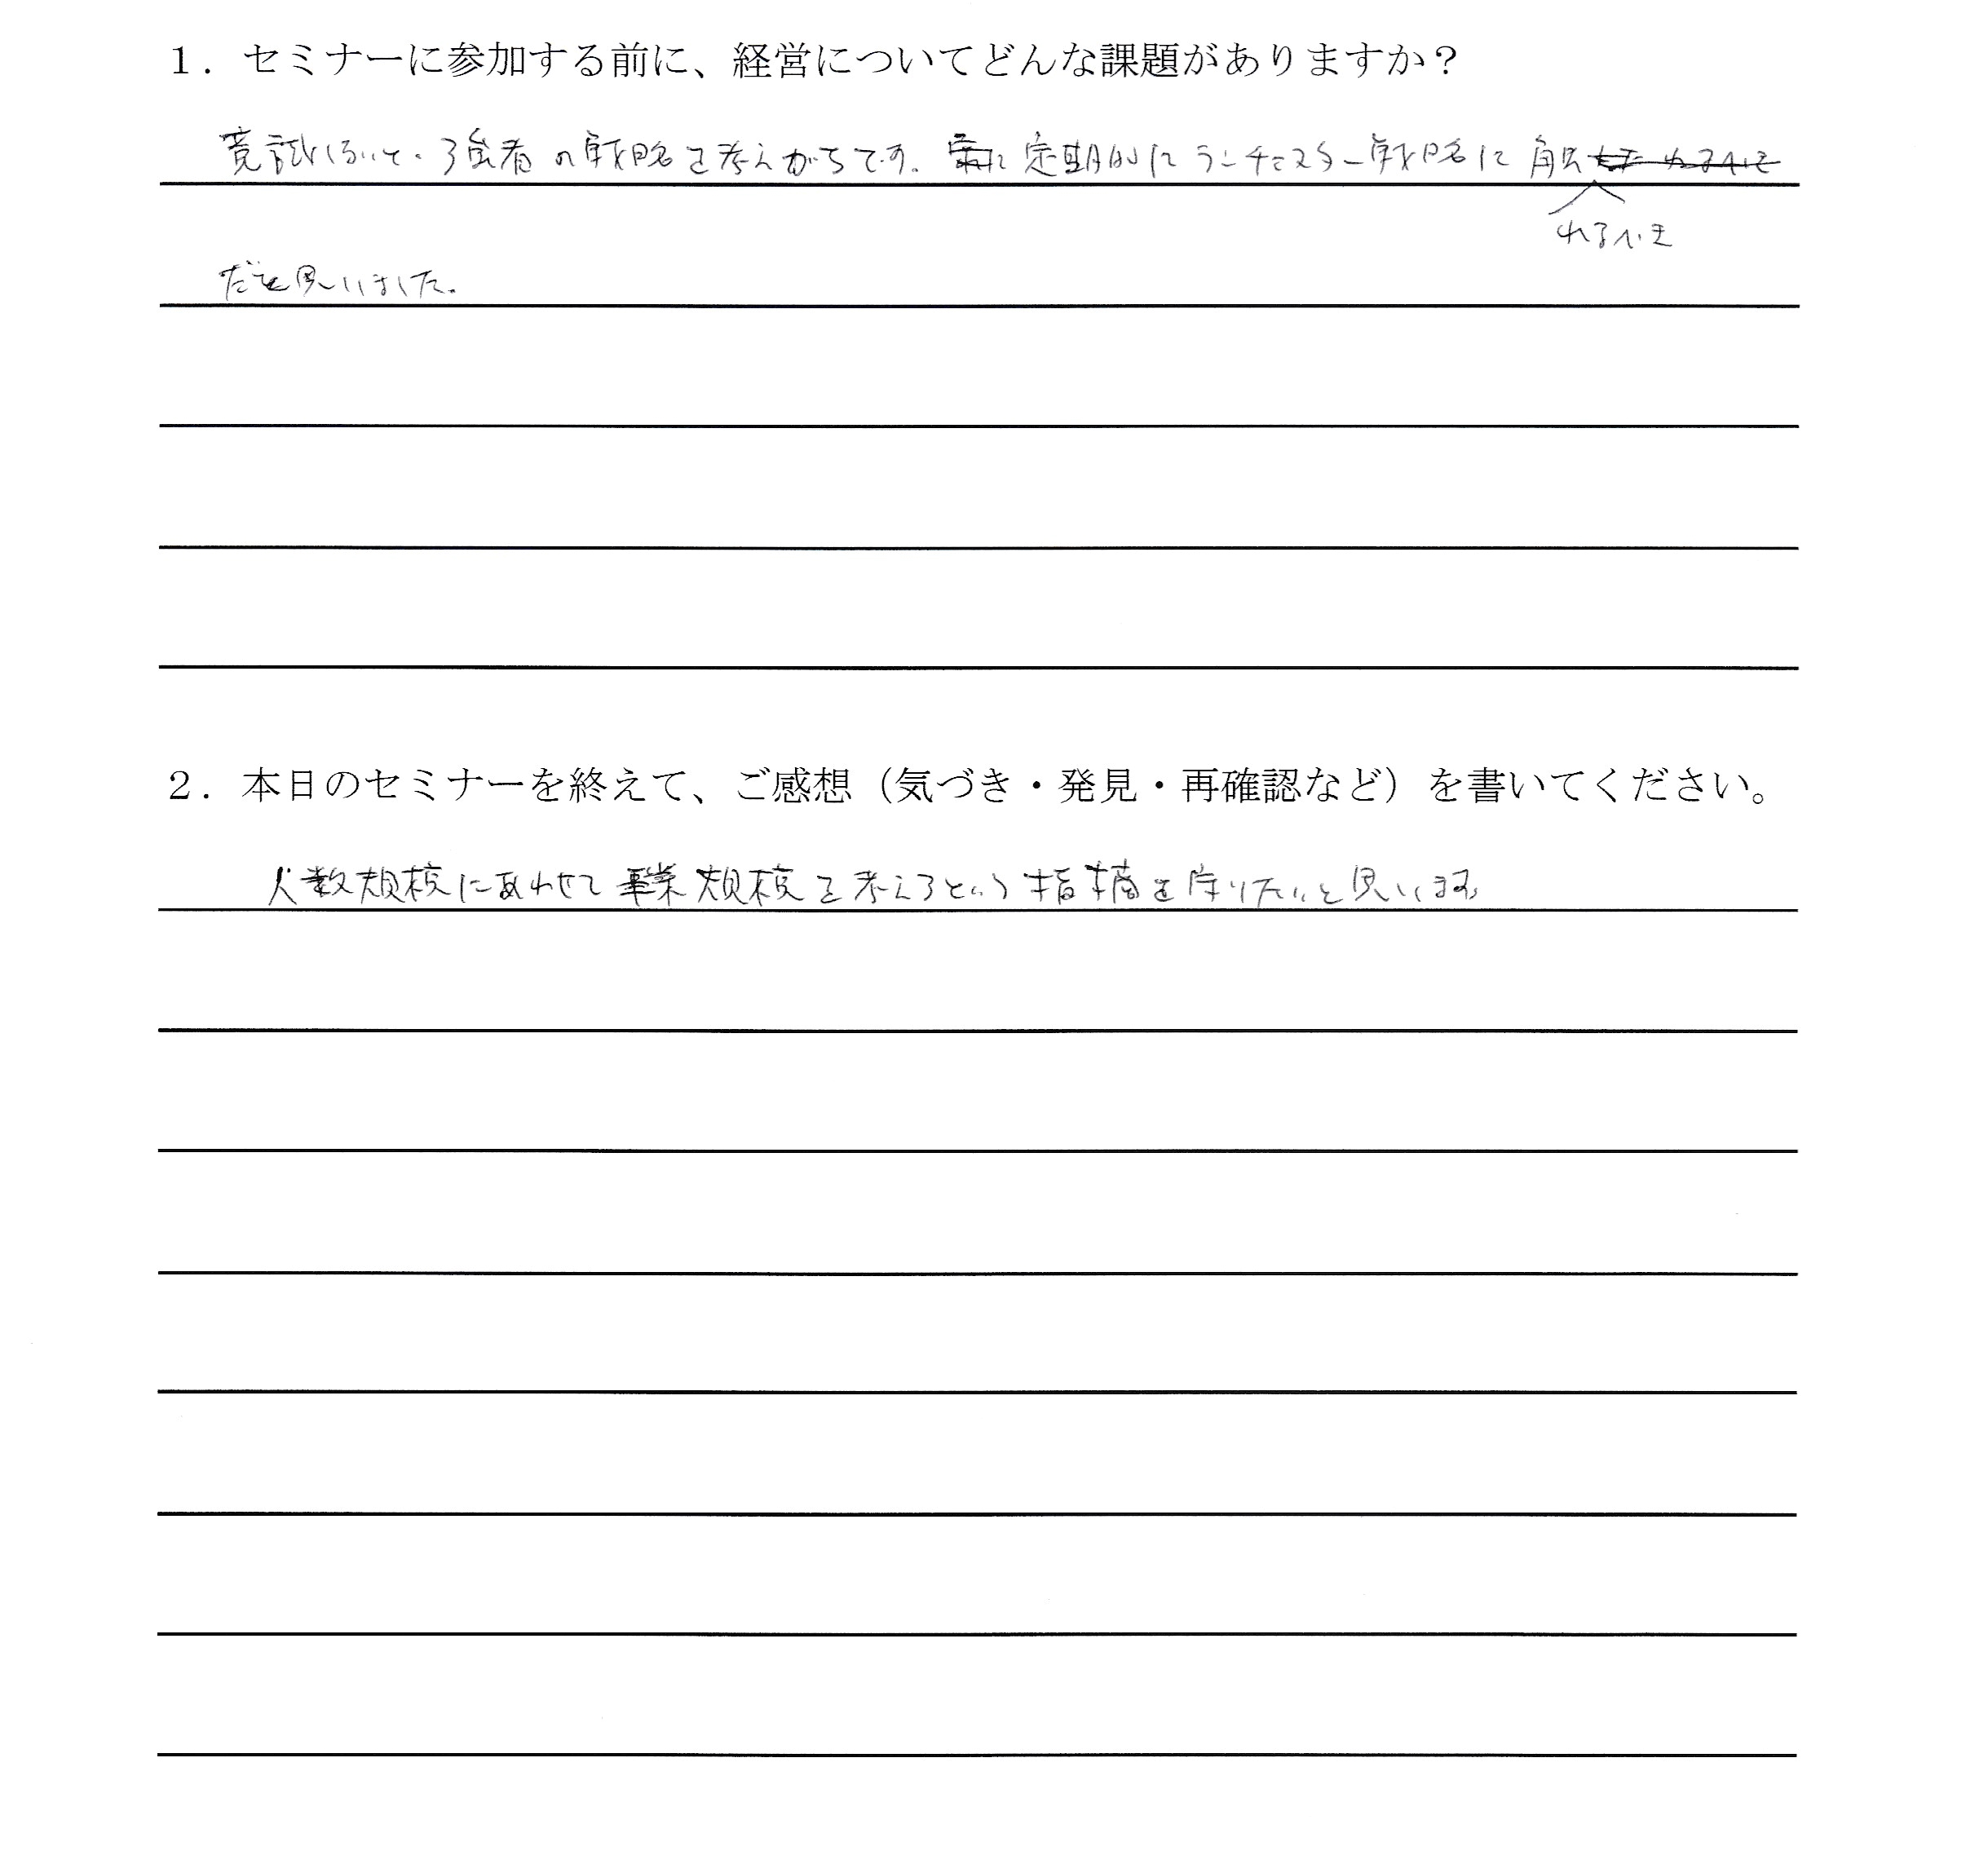 1．セミナーに参加する前に、経営についてどんな課題がありますか？
意識しないと、強者の戦略を考えがちです。定期的にランチェスター戦略に触
れるべき
だと思いました。
2．本日のセミナーを終えて、ご感想（気づき・発見・再確認など）を書いてください。
人数規模にあわせて事業規模を考えるという指摘を守りたいと思います